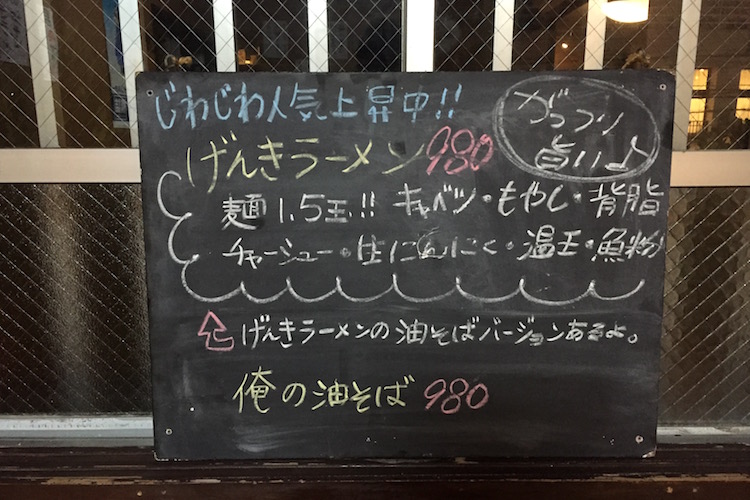 じわじわ人気上昇中!!
がっつり
旨いよ
げんきラーメン980
麺1.5玉!! キャベツ・もやし・背脂
チャーシュー・生にんにく・温玉・魚粉
げんきラーメンの油そばバージョンあるよ。
俺の油そば 980